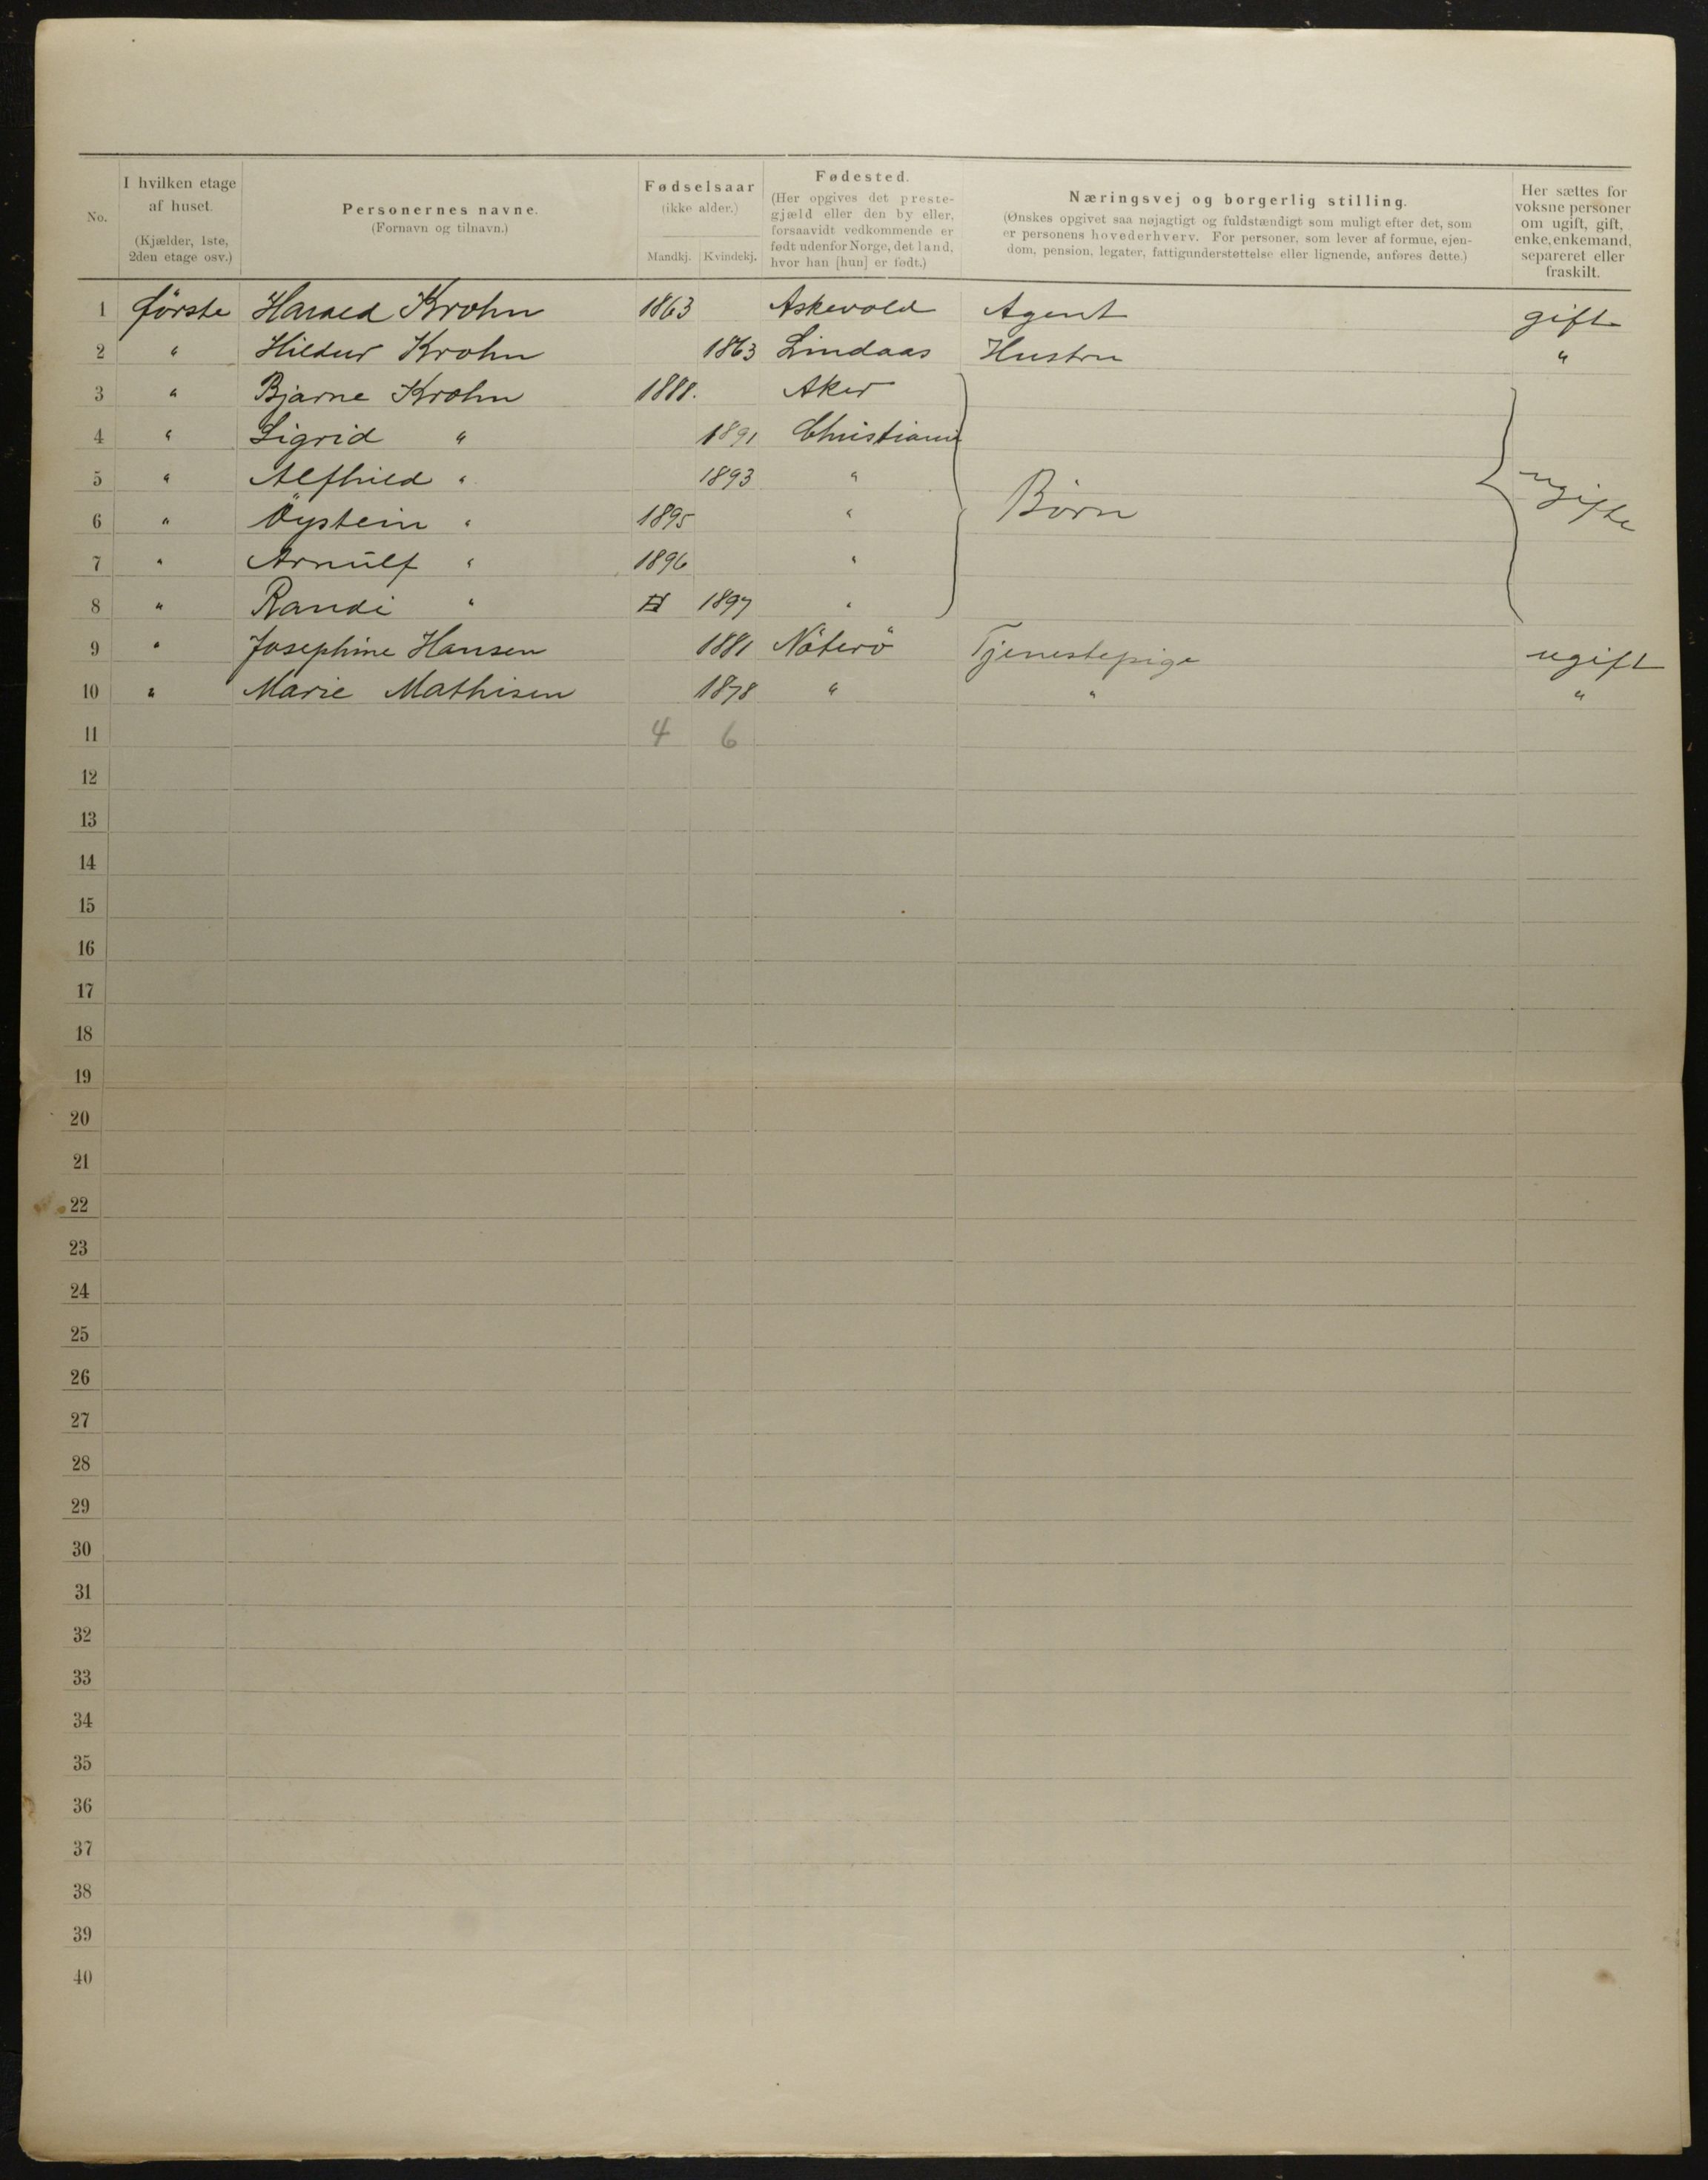 No.
I hvilken etage af huset.
(Kjælder, 1ste, 2den etage osv.)
Personernes navne.
(Fornavn og tilnavn.)
Fødselsaar
(ikke alder.)
Mandkj. Kvindekj.
Fødested.
(Her opgives det prestegjæld eller den by eller, forsaavidt vedkommende er født udenfor Norge, det land, hvor han [hun] er født.)
Næringsvej og borgerlig stilling.
(Ønskes opgivet saa nøjagtigt og fuldstændigt som muligt efter det, som er personens hovederhverv. For personer, som lever af formue, ejendom, pension, legater, fattigunderstøttelse eller lignende, anføres dette.)
Her sættes for voksne personer om ugift, gift, enke, enkemand, separeret eller fraskilt.
1 første Harald Krohn 1863 Askevold Agent gift
2 " Hildur Krohn 1863 Lindaas Hustru "
3 " Bjarne Krohn 1888. Aker
4 " Sigrid " 1891 Christiania
5 " Alfhild " 1893 "
6 " Öystein " 1895 " Børn ugifte
7 " Arnulf " 1896 "
8 " Randi " 1897 "
9 " Josephine Hansen 1881 Nöterö Tjenestepige ugift
10 " Marie Mathisen 1878 " " "
11 4 6
12
13
14
15
16
17
18
19
20
21
22
23
24
25
26
27
28
29
30
31
32
33
34
35
36
37
38
39
40